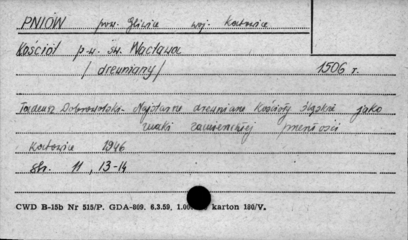 PNIÓW pow. Gliwice woj. Katowice
Kościół p.w. św. Wacława
/ drewniany / 1506 r.
Tadeusz Dobrowolski - Najstarsze drewniane Kościoły Śląskie jako
znaki
Katowice 1946
str. 11, 13-14
CWD B-15b Nr 515/P. GDA-809. 6.3.59. 1.00 karton 180/V.